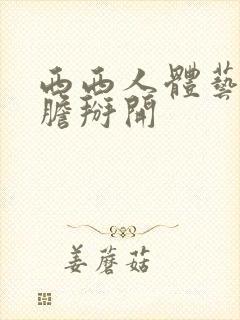 西西人體藝
膽掰開
姜蘑菇